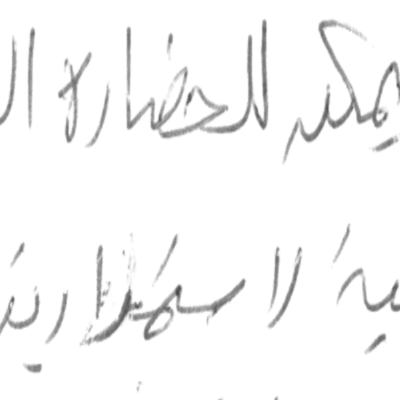 يمكن للحضارة ال
ية لاستمرارية